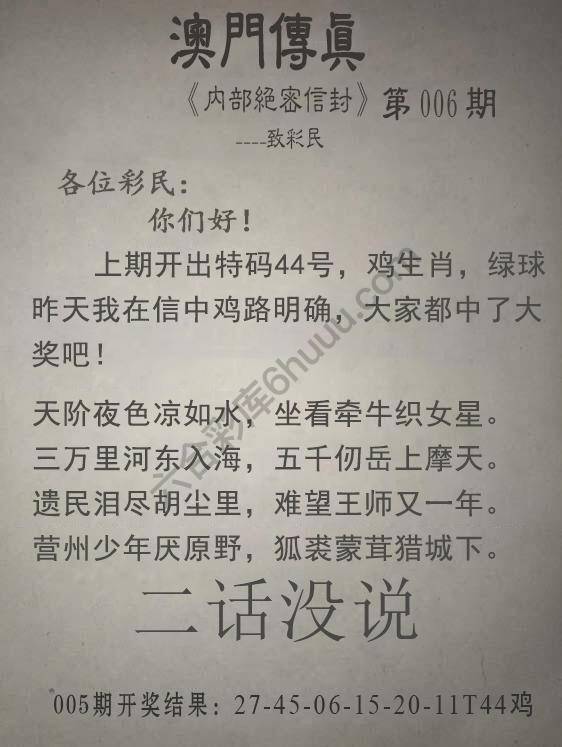 澳門傳眞
《内部絕密信封》第006期
----致彩民
各位彩民：
你们好！
上期开出特码44号，鸡生肖，绿球
昨天我在信中鸡路明确，大家都中了大
奖吧！
天阶夜色凉如水，坐看牵牛织女星。
三万里河东入海，五千仞岳上摩天。
遗民泪尽胡尘里，难望王师又一年。
营州少年厌原野，狐裘蒙茸猎城下。
二话没说
005期开奖结果：27-45-06-15-20-11T44鸡
六合彩库6huuu.com